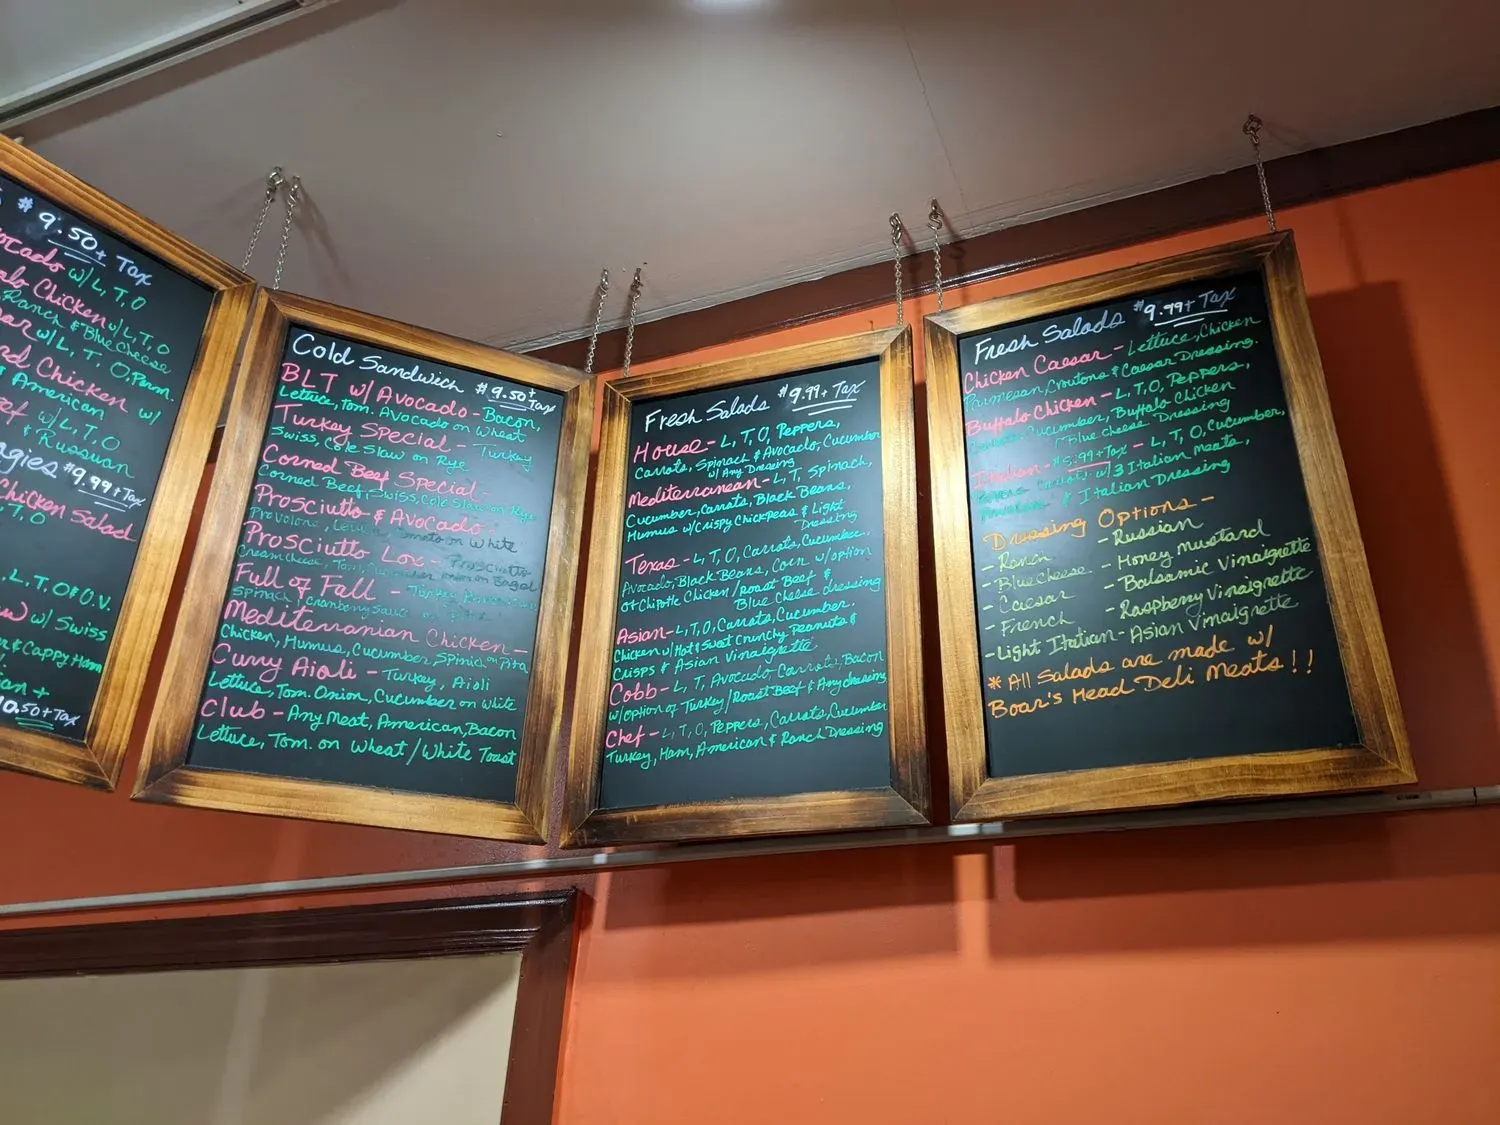 $9.50+ Tax
ocado w/L, T, O
alo Chicken w/L, T, O
Ranch & Blue Cheese
ar w/L, T, O, Parm.
d Chicken w/
& American
ef w/L, T, O
& Russian
gies $9.99+Tax
Chicken Salad
, T, O
L.T.O & O.V.
w w/ Swiss
r & Cappy Ham
ian +
.50+Tax
Cold Sandwich $9.50+Tax
BLT w/ Avocado - Bacon,
Lettuce, Tom. Avocado on Wheat
Turkey Special - Turkey
Swiss, Cole Slaw on Rye
Corned Beef Special -
Corned Beef, Swiss, Cole Slaw on Rye
Prosciutto & Avocado -
Provolone, Tomato on White
Prosciutto Lox - Prosciutto
Cream Cheese, Tom, on Bagel
Full of Fall - Turkey
Spinach, Cranberry Sauce on
Mediterranian Chicken -
Chicken, Humus, Cucumber, Spinic on Pita
Curry Aioli - Turkey, Aioli
Lettuce, Tom. Onion, Cucumber on White
Club - Any Meat, American, Bacon
Lettuce, Tom. on Wheat / White Toast
Fresh Salads $9.99+ Tax
House - L, T, O, Peppers,
Carrots, Spinach & Avocado, Cucumber
w/ Any Dressing
Mediterranean - L, T, Spinach,
Cucumber, Carrots, Black Beans,
Humus w/Crispy Chickpeas & Light
Dressing
Texas - L, T, O, Carrots, Cucumber,
Avocado, Black Beans, Corn w/option
of Chipotle Chicken / Roast Beef &
Blue Cheese dressing
Asian - L, T, O, Carrots, Cucumber,
Chicken w/ Hot & Sweet Crunchy Peanuts &
Crisps & Asian Vinaigrette
Cobb - L, T, Avocado, Carrots, Bacon
w/option of Turkey / Roast Beef & Any dressing
Chef - L, T, O, Peppers, Carrots, Cucumber
Turkey, Ham, American & Ranch Dressing
Fresh Salads $9.99+ Tax
Chicken Caesar - Lettuce, Chicken
Parmesan, Croutons & Caesar Dressing.
Buffalo Chicken - L, T, O, Peppers,
Cucumber, Buffalo Chicken
/ Blue Cheese Dressing
Italian - +Tax - L, T, O, Cucumber,
Carrots w/ 3 Italian Meats,
& Italian Dressing
Dressing Options -
- Ranch - Russian
- Blue Cheese - Honey Mustard
- Caesar - Balsamic Vinaigrette
- French - Raspberry Vinaigrette
- Light Italian - Asian Vinaigrette
* All Salads are made w/
Boar's Head Deli Meats!!